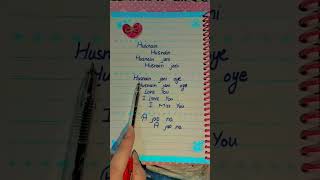 Husnain
Husnain
Husnain jani
Husnain jani
Husnain jani oye
Husnain jani oye
Love You
I Love You
I Miss You
A jao na
A jao na